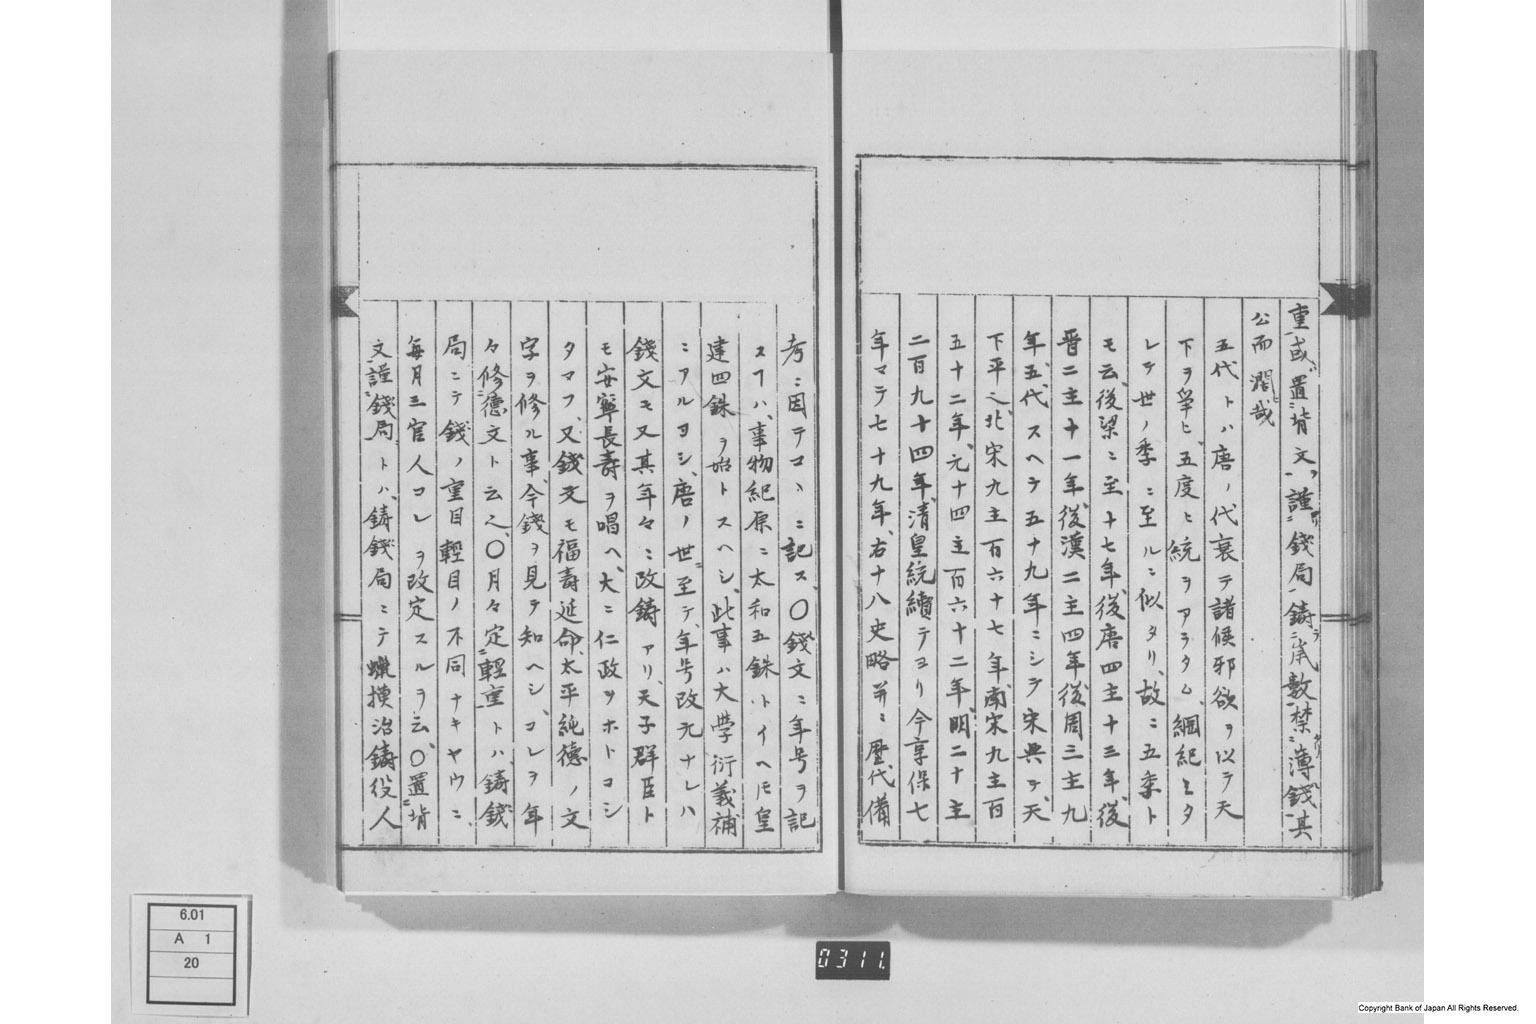 重或置背文謹錢局鋳定員數禁薄錢其
公而潤哉
五代トハ唐ノ代衰テ諸候邪欲ヲ以テ天
下ヲ爭ヒ五度ヒ統ヲアラタム綱紀ミタ
レテ世ノ季ニ至ルニ似タリ故ニ五季ト
モ云後梁ニ至十七年後唐四主十三年後
晋二主十一年後漢二主四年後周三主九
年五代スヘテ五十九年ニシテ宋興テ天
下平之北宋九主百六十七年南宋九主百
五十二年元十四主百六十二年明二十主
二百九十四年清皇統續テヨリ今享保七
年マテ七十九年右十八史略并ニ歴代備
考ニ因テコヽニ記ス〇錢文ニ年号ヲ記
スヿハ事物紀原ニ太和五銖トイヘ𪜈皇
建四銖ヲ始トスヘシ此事ハ大学衍義補
ニアルヨシ唐ノ世至テ年号改元ナレハ
錢文モ又其年々ニ改鋳アリ天子群臣ト
モ安寧長壽ヲ唱ヘ大ニ仁政ヲホトコシ
タマフ又錢文モ福壽延命太平純德ノ文
字ヲ修ル事今錢ヲ見テ知ヘシコレヲ年
々修德文ト云之〇月々定輕重トハ鋳錢
局ニテ錢ノ重目輕目ノ不同ナキヤウニ
毎月三官人コレヲ改定スルヲ云〇置背
文謹錢局トハ鋳錢局ニテ蠟摸冶鋳役人
6.01
A 1
20
0311.
Copyright Bank of Japan All Rights Reserved.